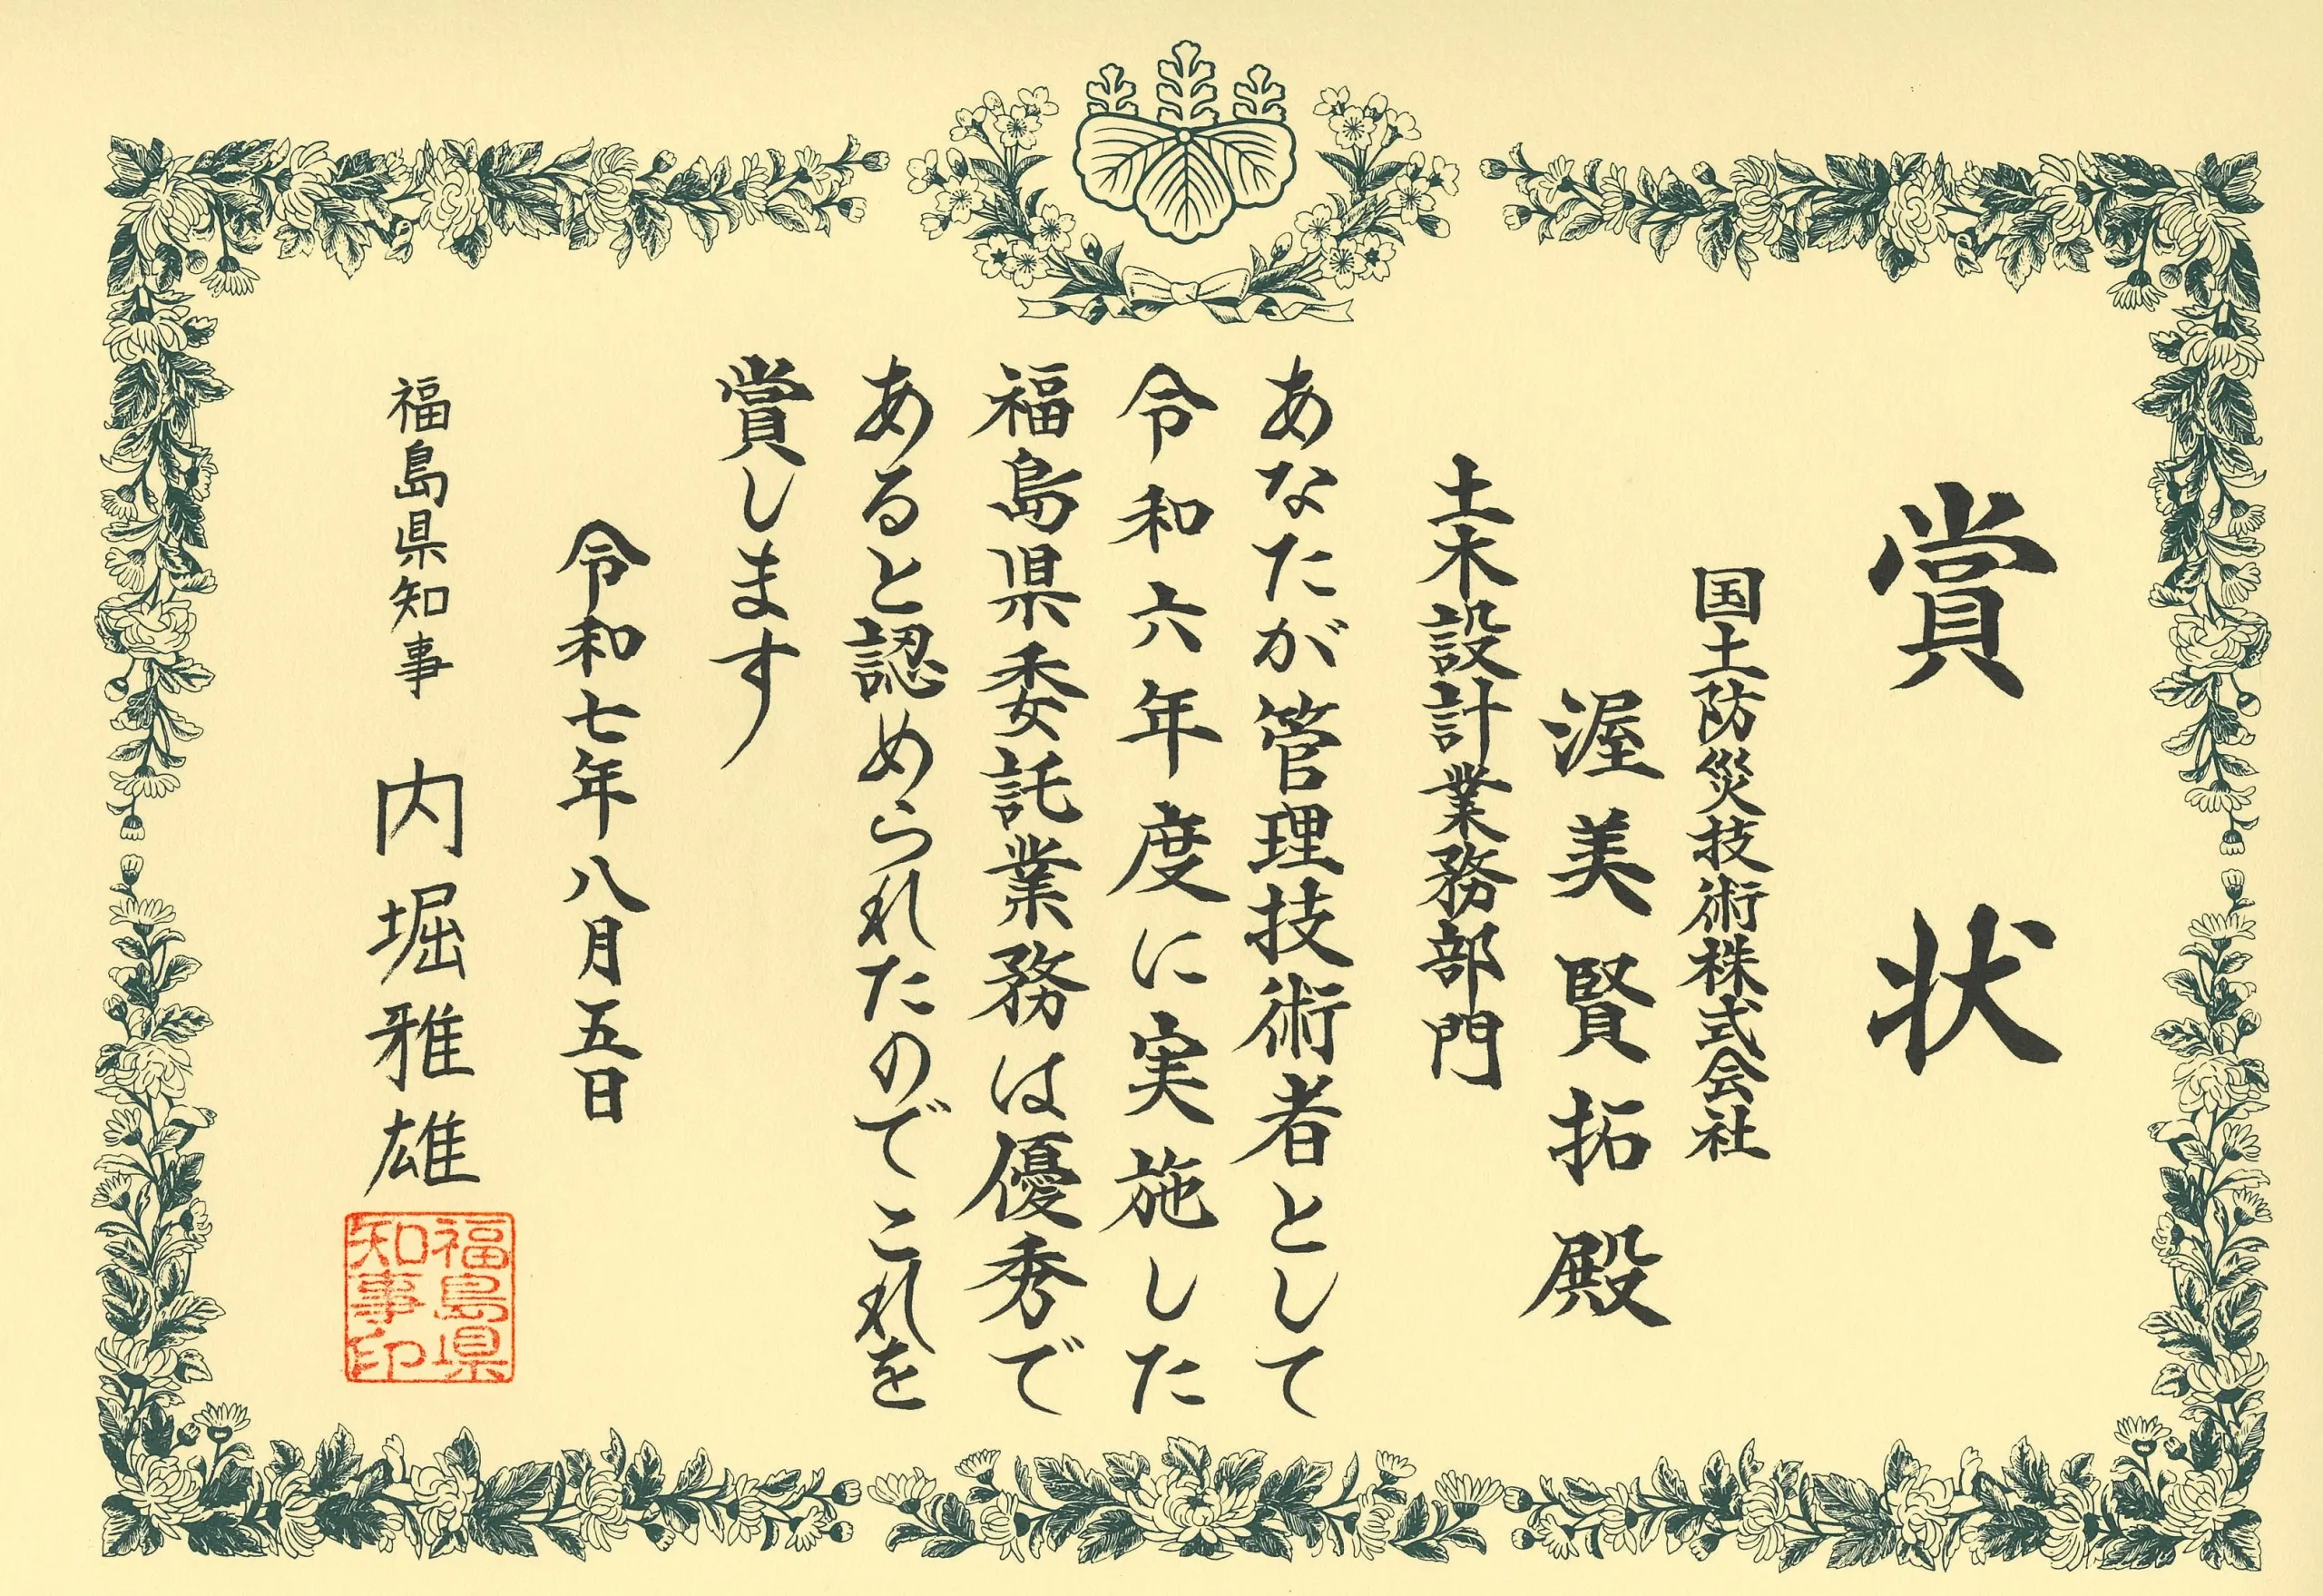 賞状
国土防災技術株式会社
渥美賢拓殿
土木設計業務部門
あなたが管理技術者として
令和六年度に実施した
福島県委託業務は優秀で
あると認められたのでこれを
賞します
令和七年八月五日
福島県知事 内堀雅雄
福島県
知事印